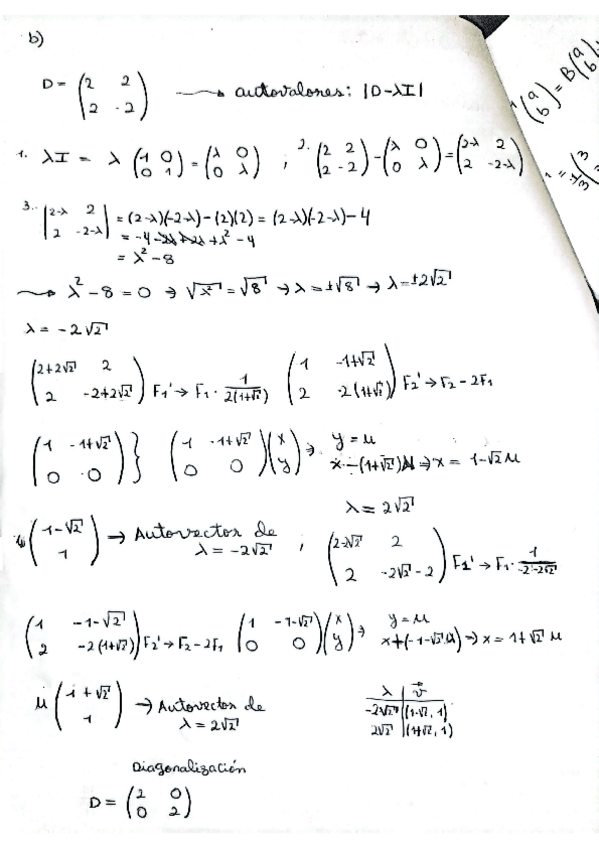 b)
D = (2 2; 2 -2) → autovalores: |D-λI|
1. λI = λ (1 0; 0 1) = (λ 0; 0 λ) ; 2. (2 2; 2 -2) - (λ 0; 0 λ) = (2-λ 2; 2 -2-λ)
3. |2-λ 2; 2 -2-λ| = (2-λ)(-2-λ) - (2)(2) = (2-λ)(-2-λ) - 4
= -4 -2λ +2λ +λ² - 4
= λ² - 8
→ λ² - 8 = 0 → √λ² = √8 → λ = ±√8 → λ = ±2√2
λ = -2√2
(2+2√2 2; 2 -2+2√2) F1' → F1 · 1/2(1+√2) (1 -1+√2; 2 -2(1+√2)) F2' → F2 - 2F1
(1 -1+√2; 0 0)} (1 -1+√2; 0 0)(x; y) → y = μ
x - (1+√2)μ → x = 1-√2 μ
(1-√2; 1) → Autovector de λ = -2√2 ;
λ = 2√2
(2-2√2 2; 2 -2√2-2) F1' → F1 · 1/-2-2√2
(1 -1-√2; 2 -2(1+√2)) F2' → F2 - 2F1 (1 -1-√2; 0 0)(x; y) → y = μ
x+(-1-√2μ) → x = 1+√2 μ
μ (1+√2; 1) → Autovector de λ = 2√2
λ | v
-2√2 | (1-√2, 1)
2√2 | (1+√2, 1)
Diagonalización
D = (2 0; 0 2)
(a; b) = B (a; b)